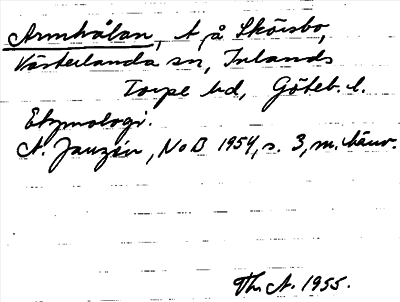 Armhålan, t å Skörsbo,
Västerlanda sn, Inlands
Torpe hd, Göteb. l.
Etymologi.
A. Janzén, NoB 1954, s. 3, m. hänv.
Th. A. 1955.